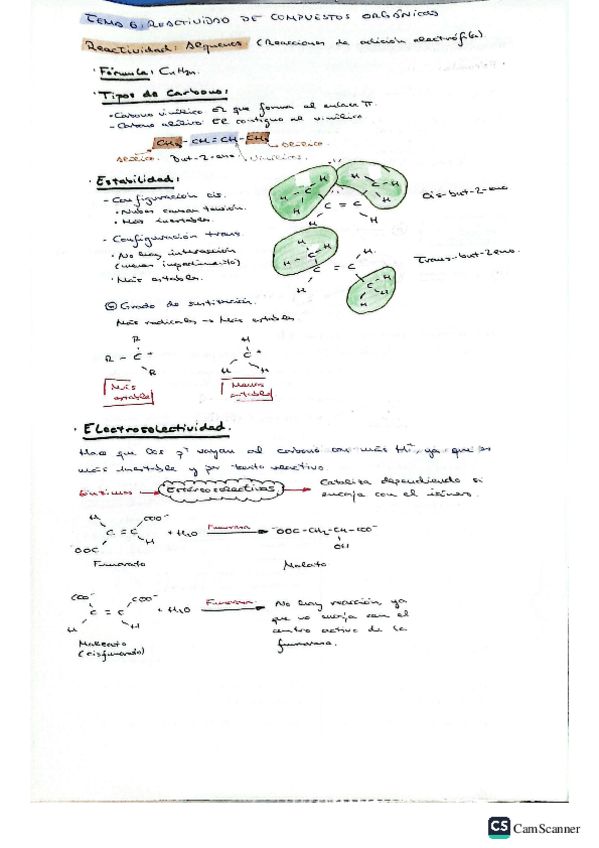 TEMA 6: REACTIVIDAD DE COMPUESTOS ORGÁNICOS
Reactividad: Alquenos (Reacciones de adición electrófila)
· Fórmula: CnH2n.
· Tipos de Carbono:
· Carbono vinílico El que forma el enlace π.
- Carbono alílico El contiguo al vinílico
CH3 - CH = CH - CH3
alílico. But-2-eno vinílicos. alílico
· Estabilidad:
- Configuración cis.
· Nubes causan tensión.
· Más inestables.
- Configuración trans.
· No hay interacción
(menor impedimento)
· Más estables.
H H H H H H
C C
C = C
H H
Cis-but-2-eno
H H H H
C C = C
H C H H H
Trans-but-2-eno.
Grado de sustitución.
Más radicales → Más estables.
R H
R - C+ C+
R H H
Más estable
Menos estable
· Electroselectividad.
Hace que los vayan al carbono con más H, ya que es
más inestable y por tanto reactivo
Enzimas → Estereoselectivas → Cataliza dependiendo si
encaja con el isómero.
H COO-
C = C + H2O Fumarasa → -OOC-CH2-CH-COO-
-OOC H OH
Fumarato Malato
COO- COO-
C = C + H2O Fumarasa → No hay reacción, ya
H H que no encaja con el
centro activo de la
fumarasa.
Maleato
(cisfumarato)
CS CamScanner